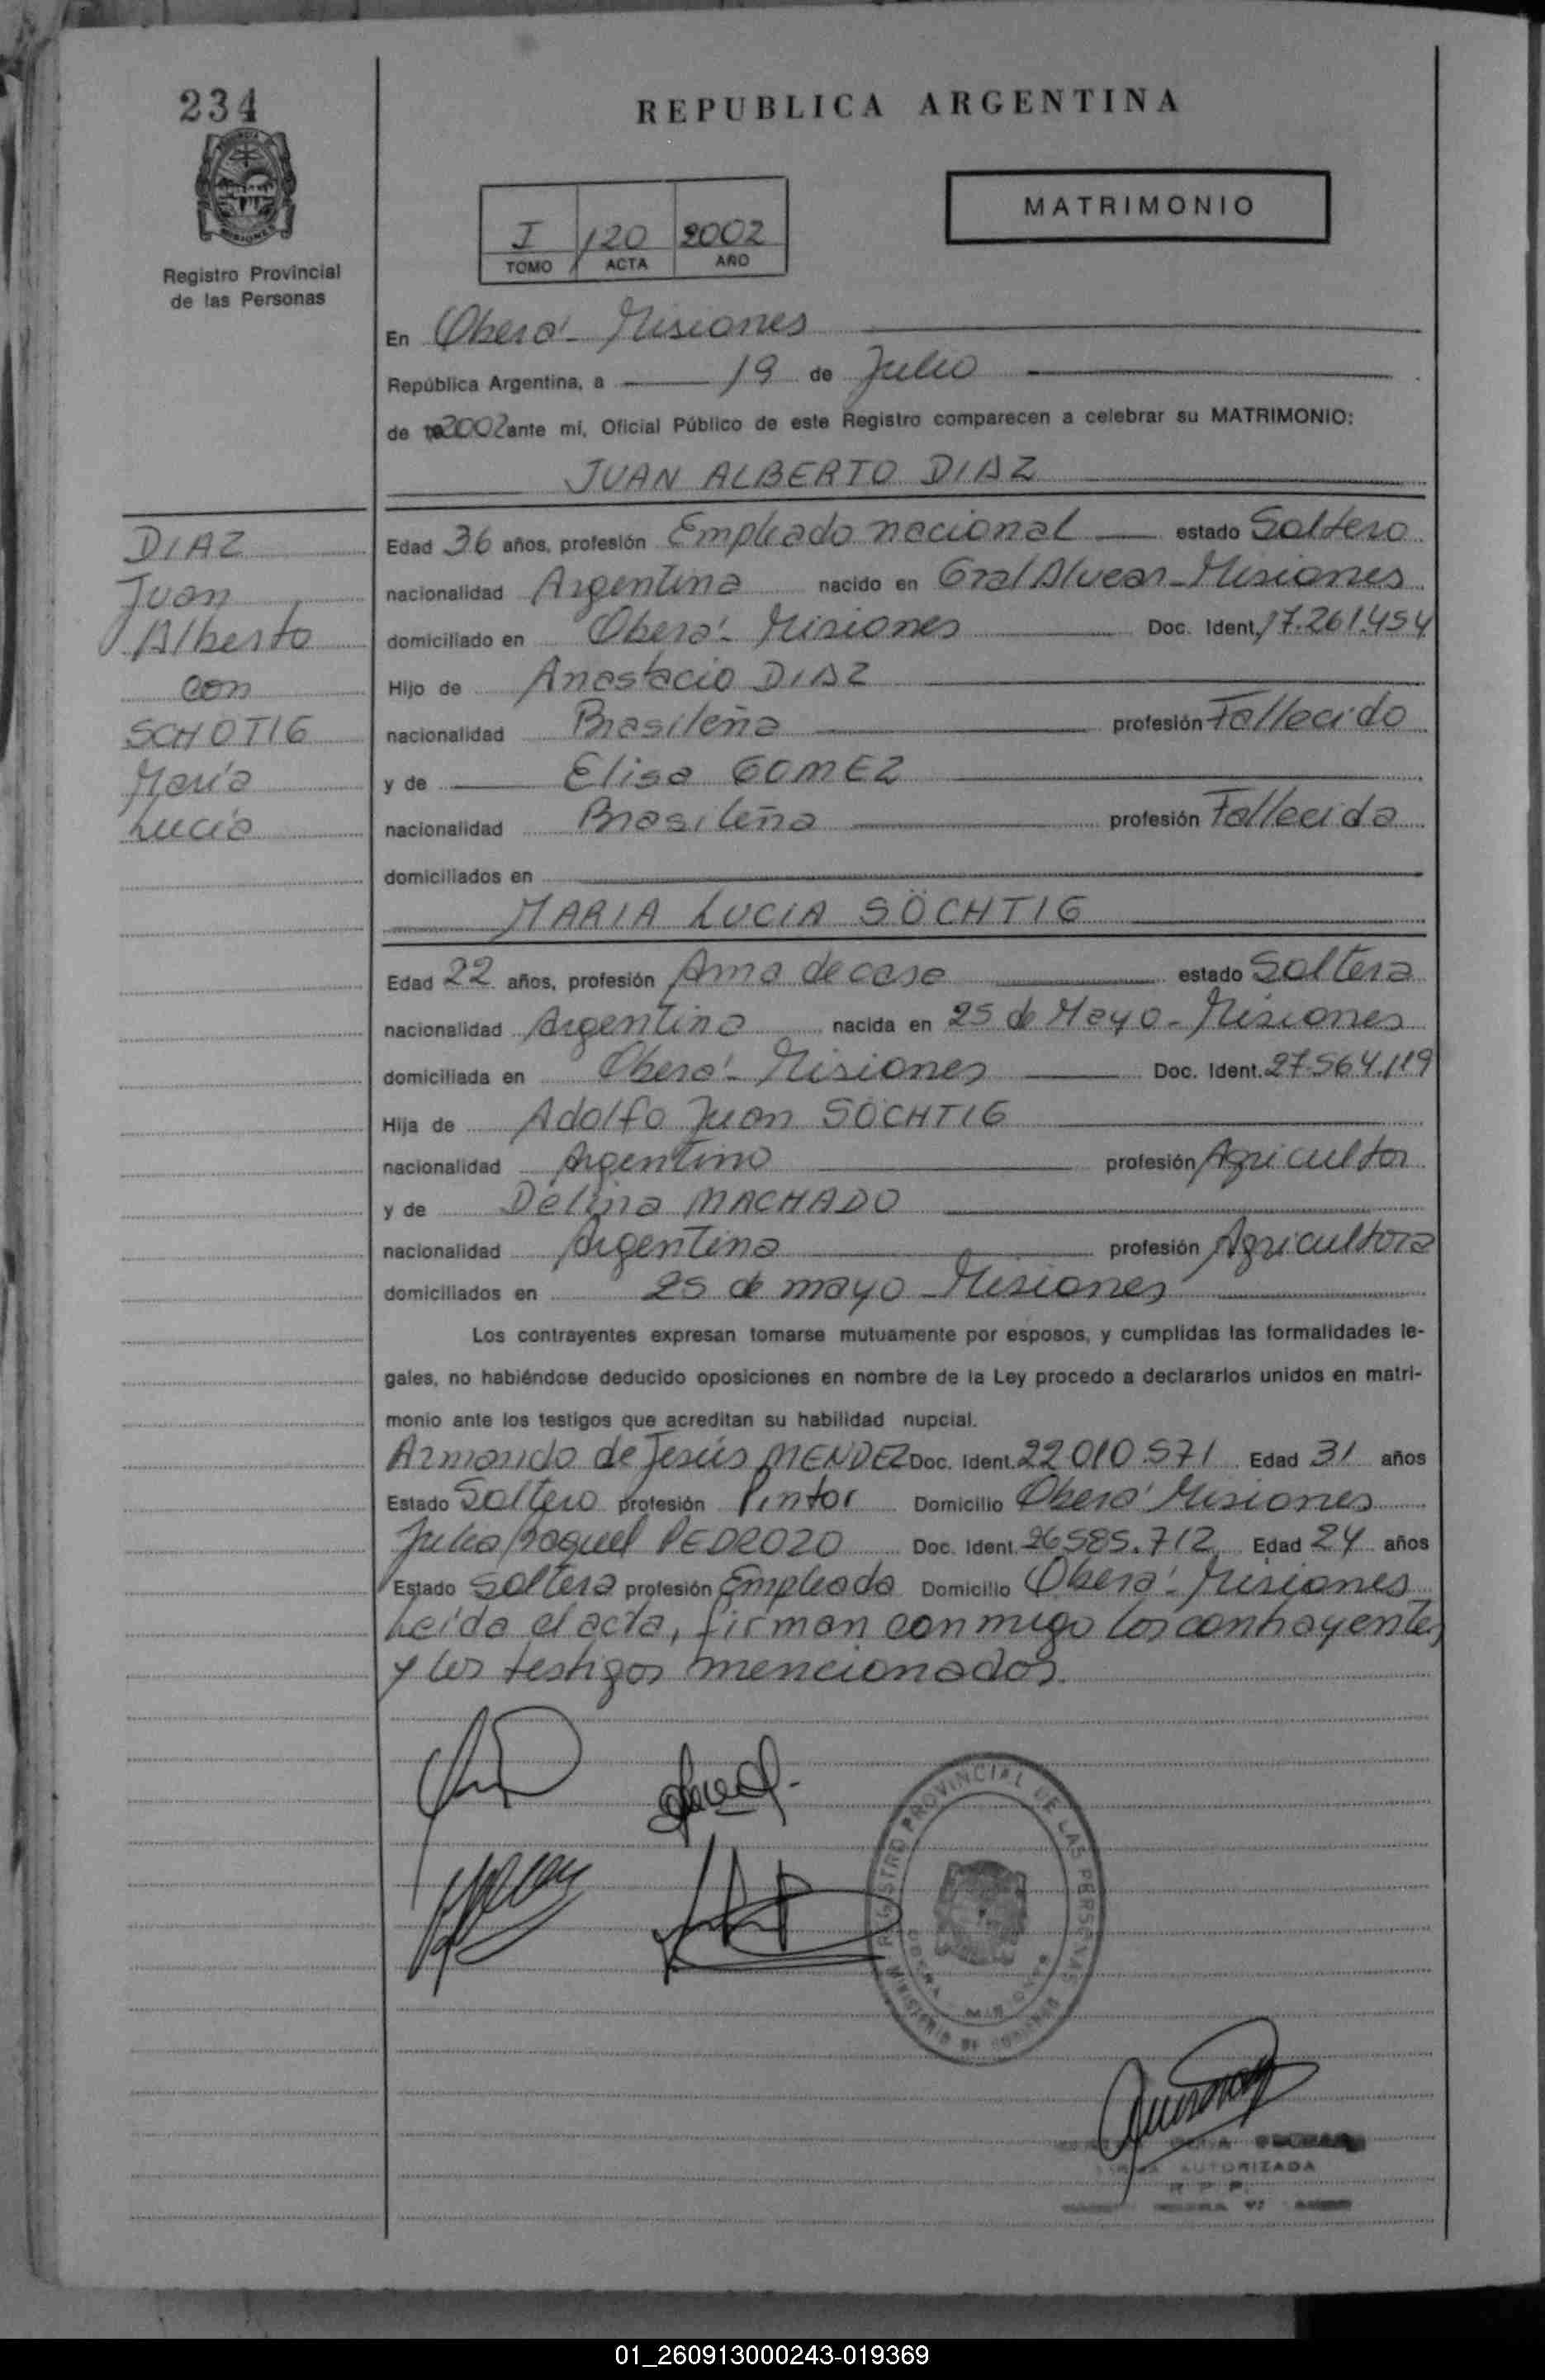 234
REPUBLICA ARGENTINA
MATRIMONIO
I 120 2002
TOMO ACTA AÑO
Registro Provincial
de las Personas
En Oberá - Misiones
República Argentina, a 19 de Julio
de 2002 ante mí, Oficial Público de este Registro comparecen a celebrar su MATRIMONIO:
JUAN ALBERTO DIAZ
DIAZ
Juan
Alberto
con
SCHOTIG
María
Lucía
Edad 36 años, profesión Empleado nacional estado Soltero
nacionalidad Argentina nacido en Gral Alvear - Misiones
domiciliado en Oberá - Misiones Doc. Ident. 17.261.454
Hijo de Anastacio DIAZ
nacionalidad Brasileña profesión Fallecido
y de Elisa GOMEZ
nacionalidad Brasileña profesión Fallecida
domiciliados en
MARIA LUCIA SÖCHTIG
Edad 22 años, profesión Ama de casa estado Soltera
nacionalidad Argentina nacida en 25 de Mayo - Misiones
domiciliada en Oberá - Misiones Doc. Ident. 27.564.119
Hija de Adolfo Juan SÖCHTIG
nacionalidad Argentino profesión Agricultor
y de Delina MACHADO
nacionalidad Argentina profesión Agricultora
domiciliados en 25 de mayo - Misiones
Los contrayentes expresan tomarse mutuamente por esposos, y cumplidas las formalidades le-
gales, no habiéndose deducido oposiciones en nombre de la Ley procedo a declararlos unidos en matri-
monio ante los testigos que acreditan su habilidad nupcial.
Armando de Jesús MENDEZ Doc. Ident. 22.010.571 Edad 31 años
Estado Soltero profesión Pintor Domicilio Oberá Misiones
Julia Raquel PEDROZO Doc. Ident. 26.585.712 Edad 24 años
Estado Soltera profesión Empleada Domicilio Oberá - Misiones
Leída el acta, firman conmigo los contrayentes
y los testigos mencionados.
REGISTRO PROVINCIAL DE LAS PERSONAS
MINISTERIO DE GOBIERNO
OBERA - MISIONES
AUTORIZADA
R P P
01_260913000243-019369